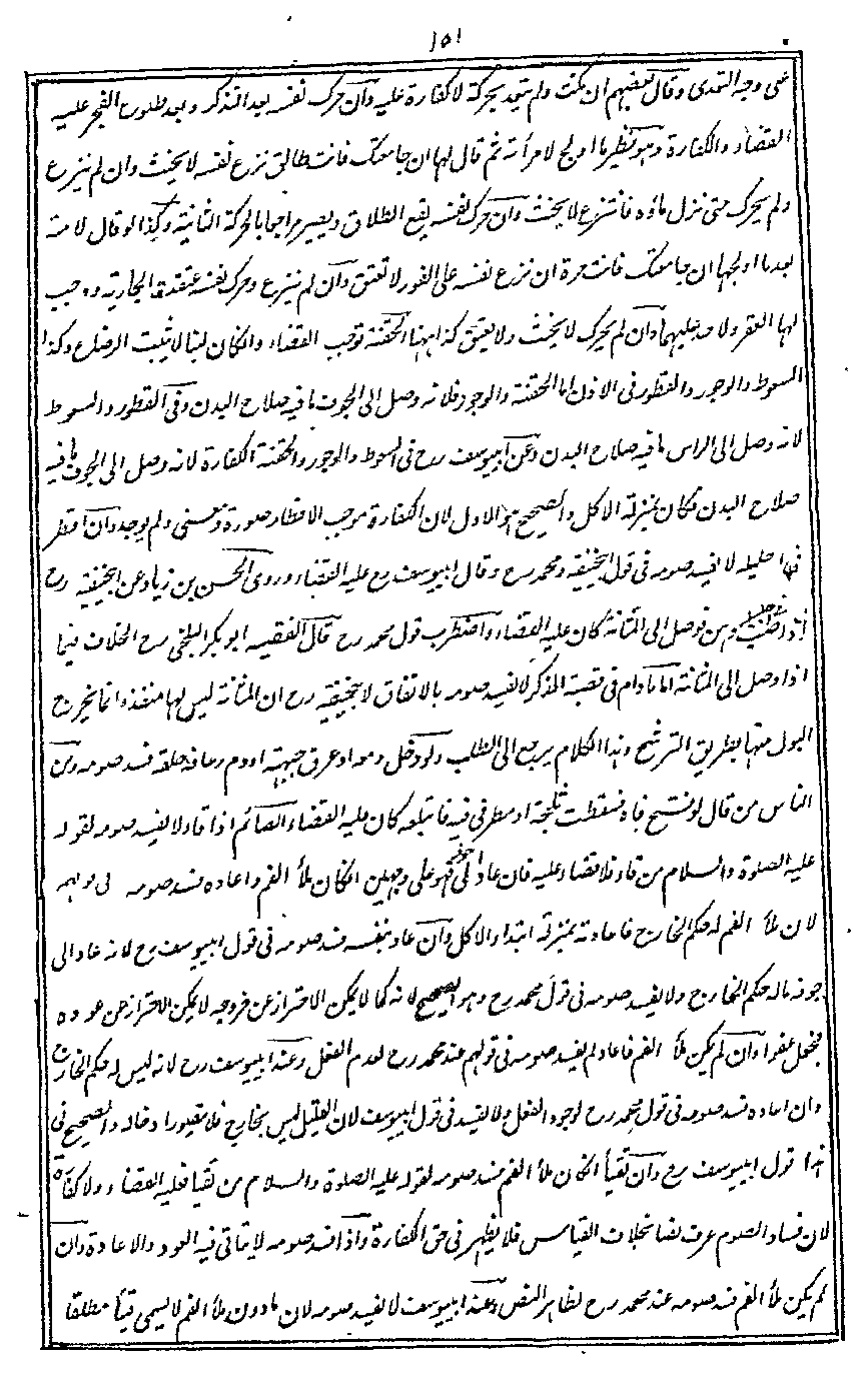 ١٥١
على وجه التعدى وقال بعضهم ان مكث ولم يتعمد بحركة لا كفارة عليه وان حرك نفسه بعد التذكر وبعد طلوع الفجر عليه
القضاء والكفارة وهو نظير ما اولج لامرأته ثم قال لها ان جامعتك فانت طالق نزع نفسه لا يحنث وان لم ينزع
ولم يحرك حتى نزل ماؤه فانتزع لا يحنث وان حرك نفسه يقع الطلاق ويصير مراجعا بالحركة الثانية وكذا لو قال لامته
بعدما اولجها ان جامعتك فانت حرة ان نزع نفسه على الفور لا تعتق وان لم ينزع وحرك نفسه عتقت الجارية ووجب
لها العقر ولا حد عليهما وان لم يحرك لا يحنث ولا يعتق كذا ههنا الحقنة توجب القضاء والكان لبنا لا يثبت الرضاع وكذا
السعوط والوجور والقطور فى الاذن اما الحقنة والوجور فلانه وصل الى الجوف ما فيه صلاح البدن وفى القطور والسعوط
لانه وصل الى الراس ما فيه صلاح البدن وعن ابيوسف رح فى السعوط والوجور والحقنة الكفارة لانه وصل الى الجوف ما فيه
صلاح البدن فكان بمنزلة الاكل والصحيح هو الاول لان الكفارة موجب الافطار صورة ومعنى ولم يوجد وان اقطر
فى احليله لا يفسد صومه فى قول ابيحنيفة ومحمد رح وقال ابيوسف رح عليه القضاء وروى الحسن بن زياد عن ابيحنيفة رح
اذا صب فى احليله دهن فوصل الى المثانة كان عليه القضاء واضطرب قول محمد رح قال الفقيه ابو بكر البلخى رح الخلاف فيما
اذا وصل الى المثانة اما ما دام فى قصبة الذكر لا يفسد صومه بالاتفاق لابيحنيفة رح ان المثانة ليس لها منفذ وانما يخرج
البول منها بطريق الترشح وهذا الكلام يرجع الى الطب ولو دخل دمعه او عرق جبهته او دم رعافه حلقه فسد صومه ومن
الناس من قال لو فتح فاه فسقطت ثلجة او مطر فى فيه فابتلعه كان عليه القضاء الصائم اذا قاء لا يفسد صومه لقوله
عليه الصلوة والسلام من قاء فلا قضاء عليه فان عاد الى جوفه فهو على وجهين الكان ملأ الفم واعاده فسد صومه فى قولهم
لان ملأ الفم له حكم الخارج فاعادته بمنزلة ابتداء الاكل وان عاد بنفسه فسد صومه فى قول ابيوسف رح لانه عاد الى
جوفه ماله حكم الخارج ولا يفسد صومه فى قول محمد رح وهو الصحيح لانه كما لا يمكن الاحتراز عن خروجه لا يمكن الاحتراز عن عوده
فجعل عفوا وان لم يكن ملأ الفم فعاد لم يفسد صومه فى قولهم عند محمد رح لعدم الفعل وعند ابيوسف رح لانه ليس له حكم الخارج
وان اعاده فسد صومه فى قول محمد رح لوجود الفعل ولا يفسد فى قول ابيوسف لان القليل ليس بخارج فلا يتصور ادخاله والصحيح فى
هذا قول ابيوسف رح وان تقيأ الكان ملأ الفم فسد صومه لقوله عليه الصلوة والسلام من تقيا فعليه القضاء ولا كفارة
لان فساد الصوم عرف نصا بخلاف القياس فلا يظهر فى حق الكفارة واذا فسد صومه لا يتاتى فيه العود والاعادة وان
لم يكن ملأ الفم فسد صومه عند محمد رح لظاهر النص وعند ابيوسف لا يفسد صومه لان ما دون ملأ الفم لا يسمى قيأ مطلقا